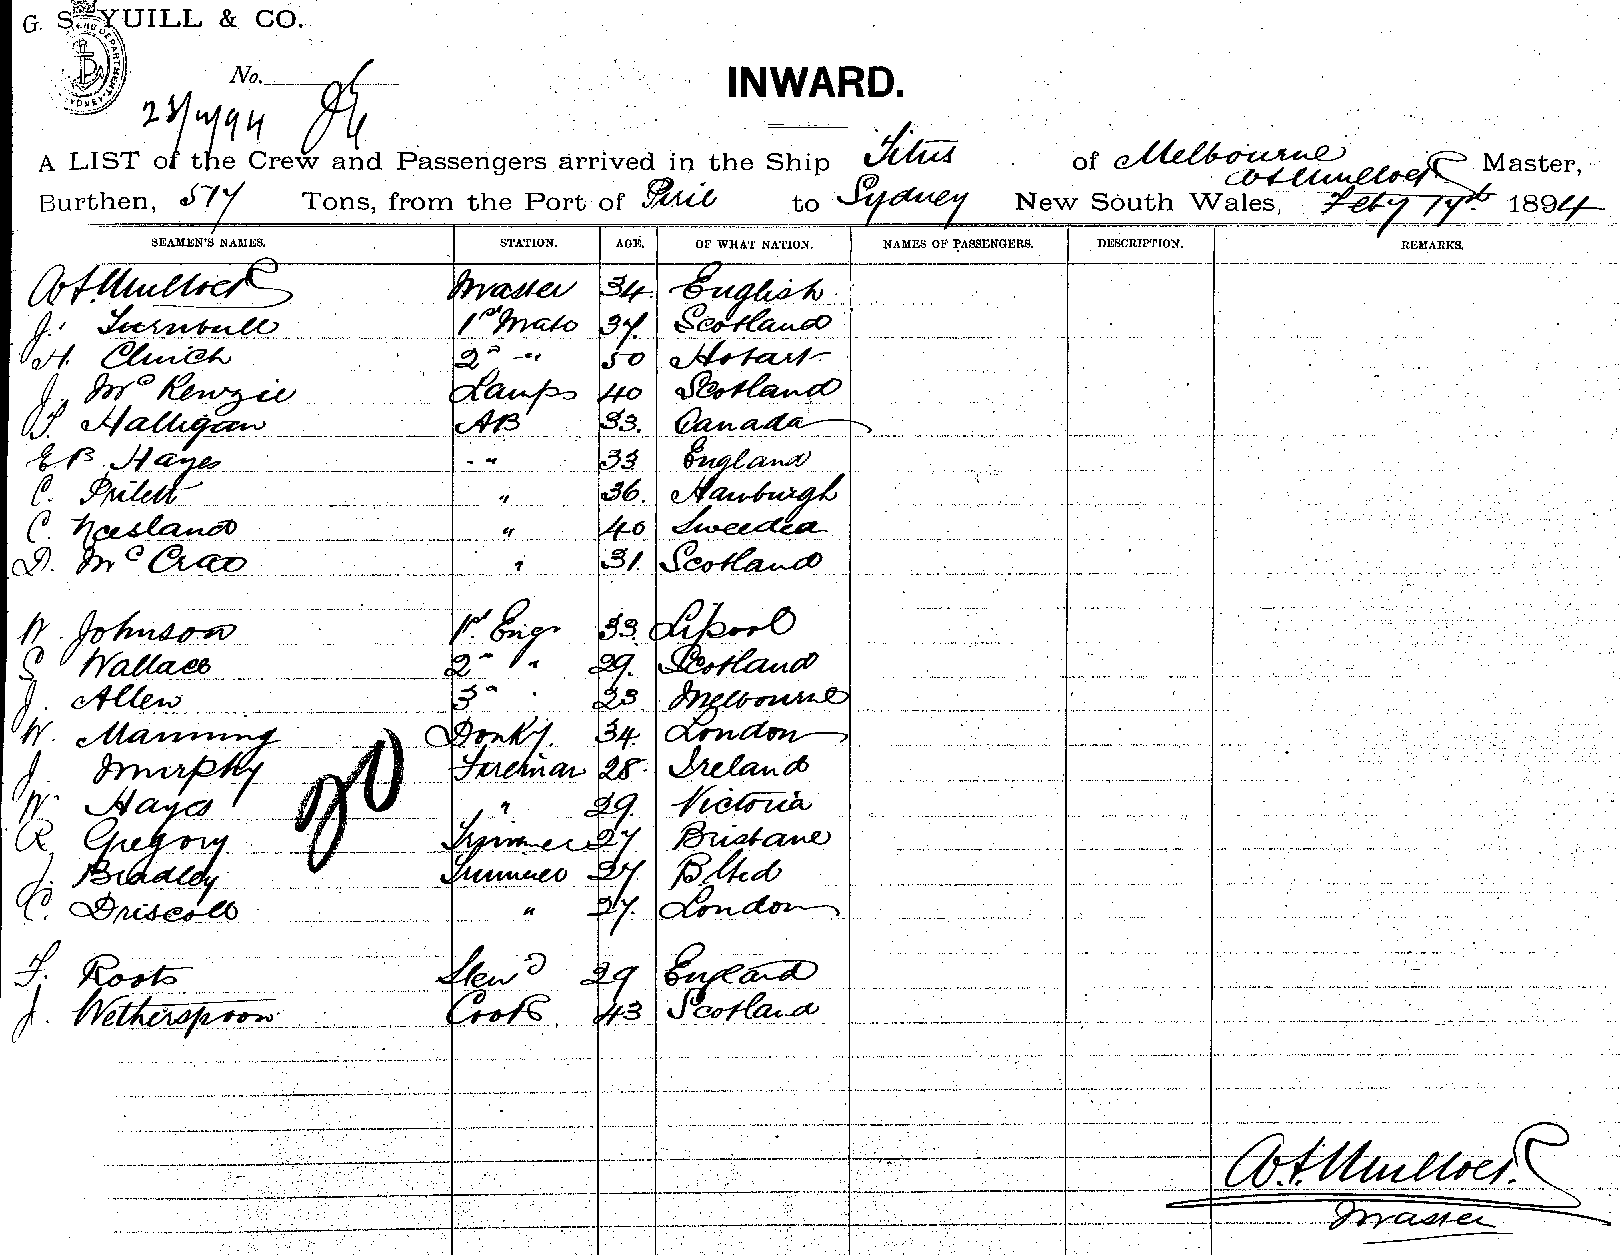 G. S. YUILL & CO.
No.
INWARD.
A LIST of the Crew and Passengers arrived in the Ship Titus of Melbourne
Master,
Burthen, 517 Tons, from the Port of Pirie to Sydney New South Wales, Feby 17th 1894
SEAMEN'S NAMES. STATION. AGE. OF WHAT NATION. NAMES OF PASSENGERS. DESCRIPTION. REMARKS.
Master 34 English
J. Turnbull 1st Mate 37. Scotland
H. Clinch 2nd " 50 Hobart
J. McKenzie Lamps 40 Scotland
Halligan AB 33. Canada
EB Hayes " 33 England
C. " 36. Hamburgh
C. " 40 Sweeden
D. McCrae " 31. Scotland
W. Johnson 1st Engr 33. L'pool
S Wallace 2nd " 29. Scotland
J. Allen 3rd " 23 Melbourne
W. Manning Donky. 34. London
J. Murphy Fireman 28. Ireland
W. Hayes " 29. Victoria
R Gregory Trimmer 27 Brisbane
J. Bradley 27
C. Driscoll " 27. London
F. Roots Stewd 29 England
J. Wetherspoon Cook 43 Scotland
Master